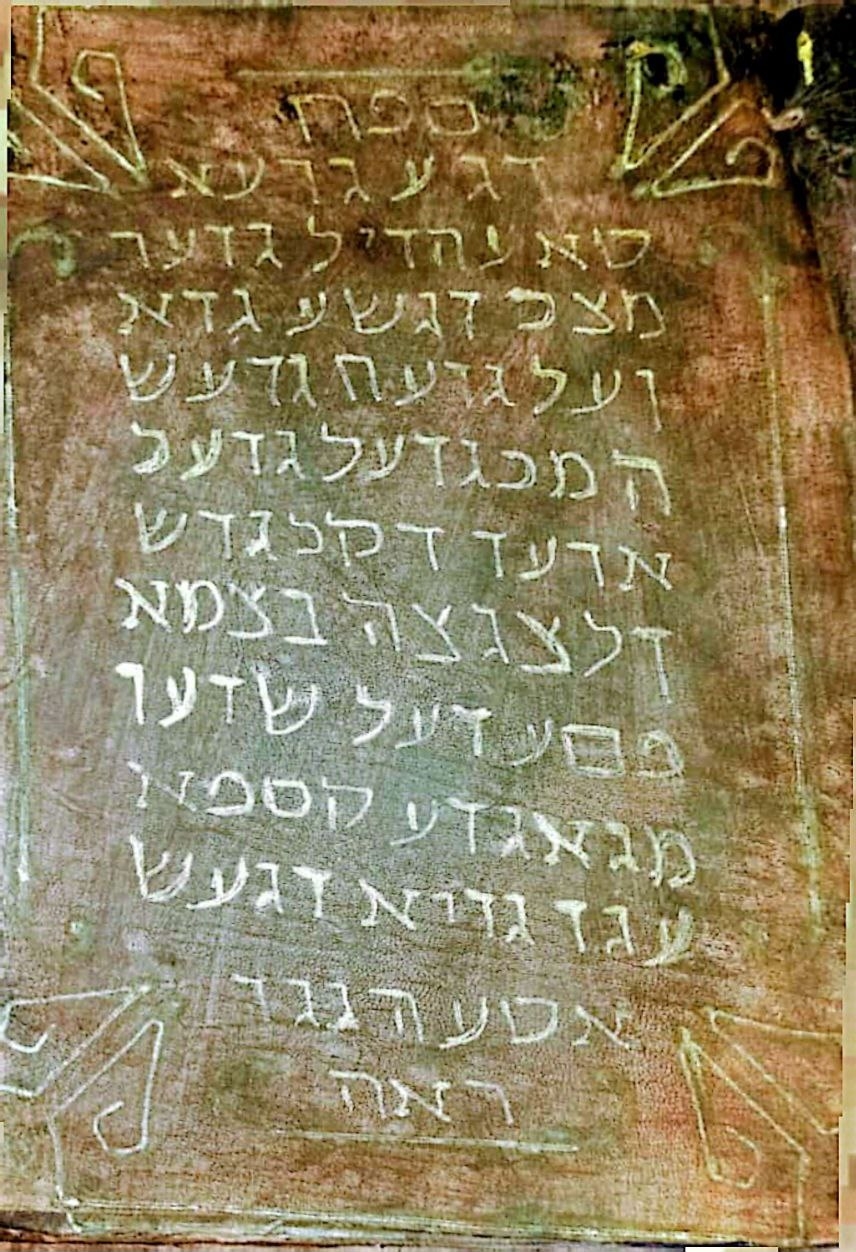 ספח
דג ע גרעא
סא עהדיל גדער
מצכ דגשע גדא
ועל גדעח גדעש
המכגדעל גדעל
ארעד דקכגדש
דלצגצה בצמא
פםע דעל שדער
מגאגדע קספא
עגד גדיא דגעש
אסעהגגד
ראה